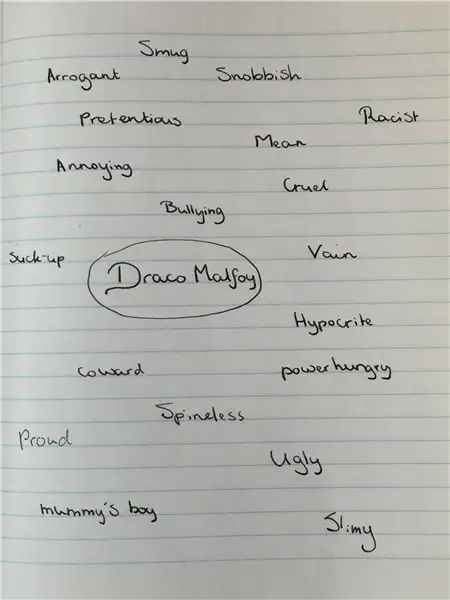 Smug
Arrogant Snobbish
Pretentious Racist
Mean
Annoying
Cruel
Bullying
Suck-up Vain
Draco Malfoy
Hypocrite
Coward powerhungry
Spineless
Proud
Ugly
mummy's boy
Slimy